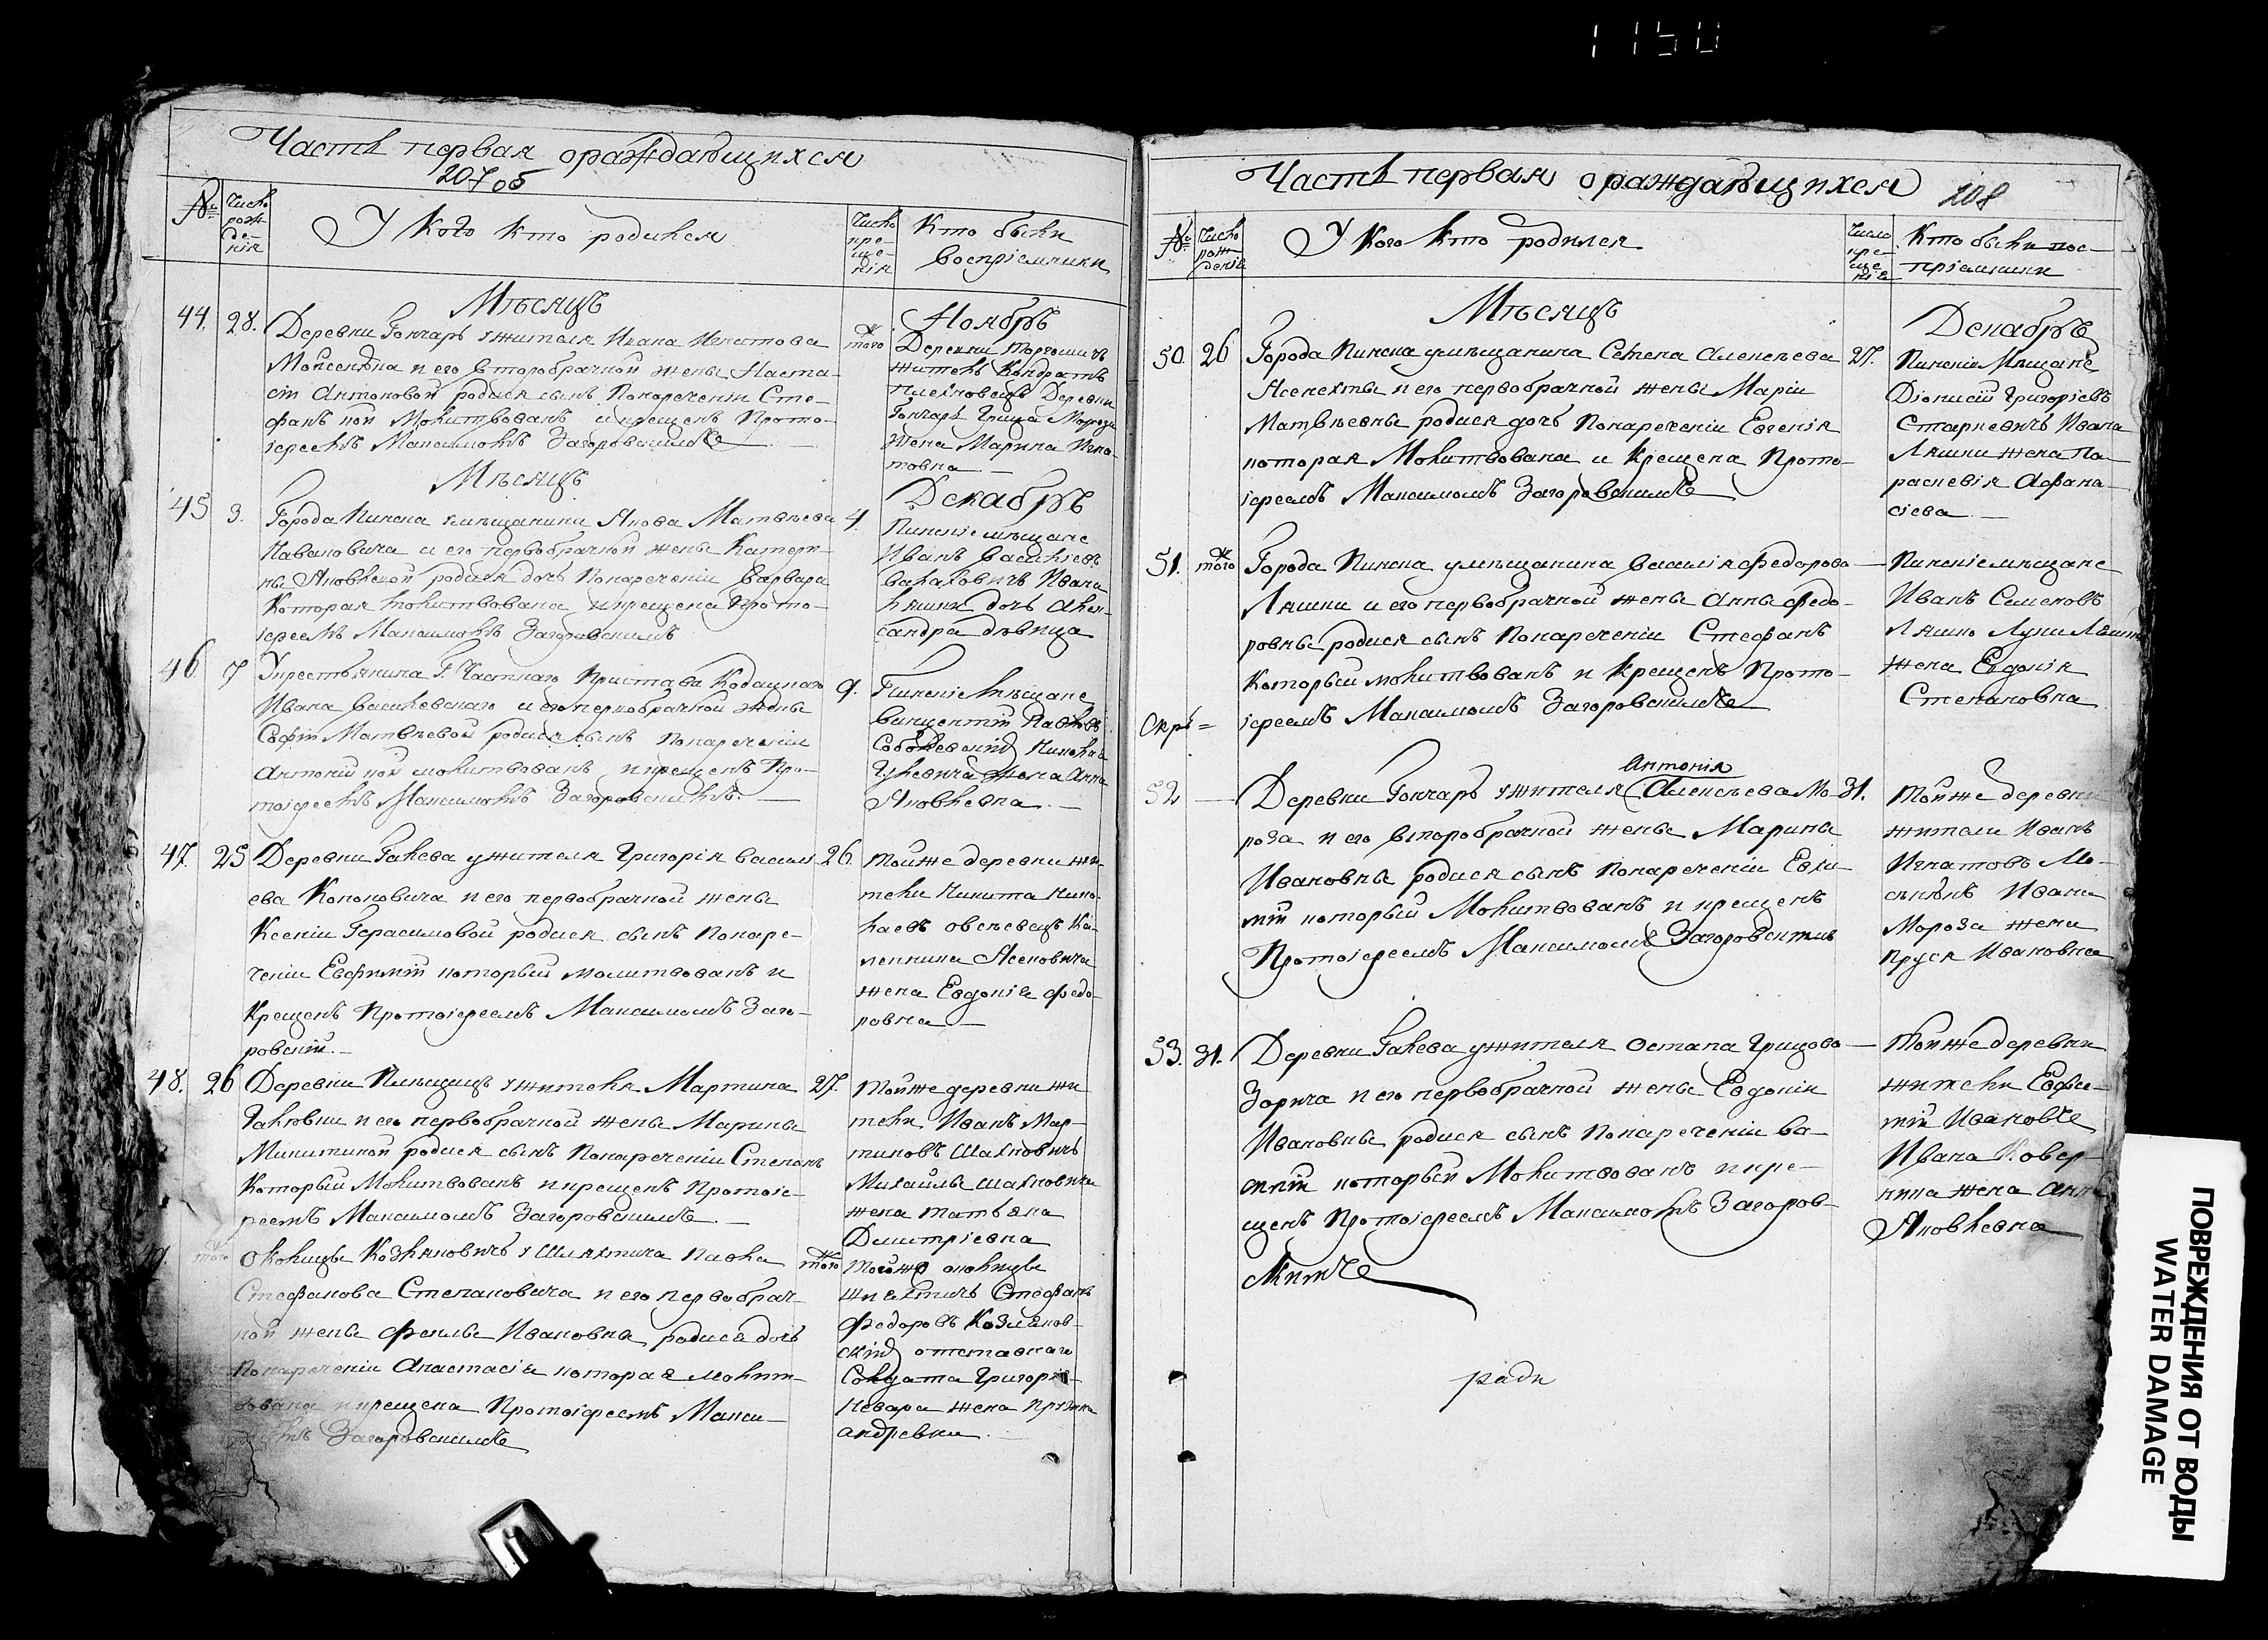 1150
Часть первая ораждающихся
207 об
№
Число рождения
У Кого Кто родился
Число крещения
Кто были воспріемники
Мѣсяцъ
Ноябрь
44. 28. Деревни Гончаръ у жителя Ивана Игнатова
и его второбрачной жены Наста-
сіи Антоновой родися сынъ Понаречени Сте-
фанъ кой Молитвованъ и крещенъ Прото-
іереемъ Максимомъ Загоровскимъ
того
Деревни
житель Кондратъ
Деревни
Гончаръ Мороза
жена Марина Игна-
товна
Мѣсяцъ
Декабрь
45 3. Города Пинска у мѣщанина Якова Матвѣева
и его первобрачной жены Катери-
ны Яковлевой родися дочь Понаречени Варвара
Которая молитвована и крещена Прото-
іереемъ Максимомъ Загоровскимъ
4.
Пинскіе мѣщане
Иванъ Василіевъ
Ивана
Ляшки дочь Алек-
сандра дѣвица
46. 7 У крестьянина Г. Частнаго Пристава
Ивана и его первобрачной жены
Софіи Матвѣевой родися сынъ Понаречени
Антоній кой молитвованъ и крещенъ Про-
тоіереемъ Максимомъ Загоровскимъ.
9.
Пинскіе Мѣщане
Викентій
Николая
жена Анна
Яковлевна
47. 25 Деревни Галева у жителя Григорія Васил-
ева Кононовича и его первобрачной жены
Ксеніи Герасимовой родися сынъ Понаре-
ченіи Евфимій который молитвованъ и
Крещенъ Протоіереемъ Максимомъ Заго-
ровскій.
26.
Той же деревни жи-
тели Никита Нико-
лаевъ
жена Евдокія Федо-
ровна
48. 26 Деревни у жителя Мартина
и его первобрачной жены Марины
Никитиной родися сынъ Понаречени Степанъ
Который Молитвованъ и крещенъ Протоіе-
реемъ Максимомъ Загоровскимъ
27.
Той же деревни жи
тели Иванъ Мар-
тиновъ Шахновичъ
Михайлы Шахновича
жена Татьяна
Дмитріевна
49. того Околицы Козляковичъ у Шляхтича Павла
Стефанова Степановича и его первобрач-
ной жены Феклы Ивановны родися дочь
Понаречени Анастасія которая молит-
вована и крещена Протоіереемъ Макси-
момъ Загоровскимъ
того
той же околицы
шляхтичъ Стефанъ
Федоровъ Козляков-
скій отставнаго
Солдата Григорія
жена
Андревна
Часть первая ораждающихся
208
№
Число рожденія
У Кого Кто родился
Число крещенія
Кто были вос-
пріемники
Мѣсяцъ
Декабрь
50. 26 Города Пинска у мѣщанина Семена Алексѣева
и его первобрачной жены Маріи
Матвѣевны родися дочь Понаречени Евгенія
которая Молитвована и Крещена Прото-
іереемъ Максимомъ Загоровскимъ
27.
Пинскіе Мѣщане
Діонисій Григорієвъ
Старкевичъ Ивана
Ляшки жена Па-
раскевія Афана-
сіева
51. того Города Пинска у мѣщанина Василія Федорова
Ляшки и его первобрачной жены Анны Федо-
ровны родися сынъ Понаречени Стефанъ
Который молитвованъ и крещенъ Прото-
іереемъ Максимомъ Загоровскимъ
Пинскіе мѣщане
Иванъ Семеновъ
Ляшко Луки Ляшки
жена Евдокія
Степановна
Скрѣ=
Антонія
52 Деревни Гончаръ у жителя Алексѣева Мо-
роза и его второбрачной жены Марины
Ивановны родися сынъ Понаречени
который Молитвованъ и крещенъ
Протоіереемъ Максимомъ Загоровскимъ
31.
Той же деревни
жители Иванъ
Игнатовъ Мо-
Ивана
Мороза жена
Ивановна
53. 31. Деревни Галева у жителя Остапа Грицова
Зорича и его первобрачной жены Евдокіи
Ивановны родися сынъ Понаречени Ва-
силій который Молитвованъ и кре-
щенъ Протоіереемъ Максимомъ Загоров-
скимъ
Той же деревни
жители Евфи-
мій
Ивана
жена Анна
Яковлевна
ради
ПОВРЕЖДЕНИЯ ОТ ВОДЫ
WATER DAMAGE